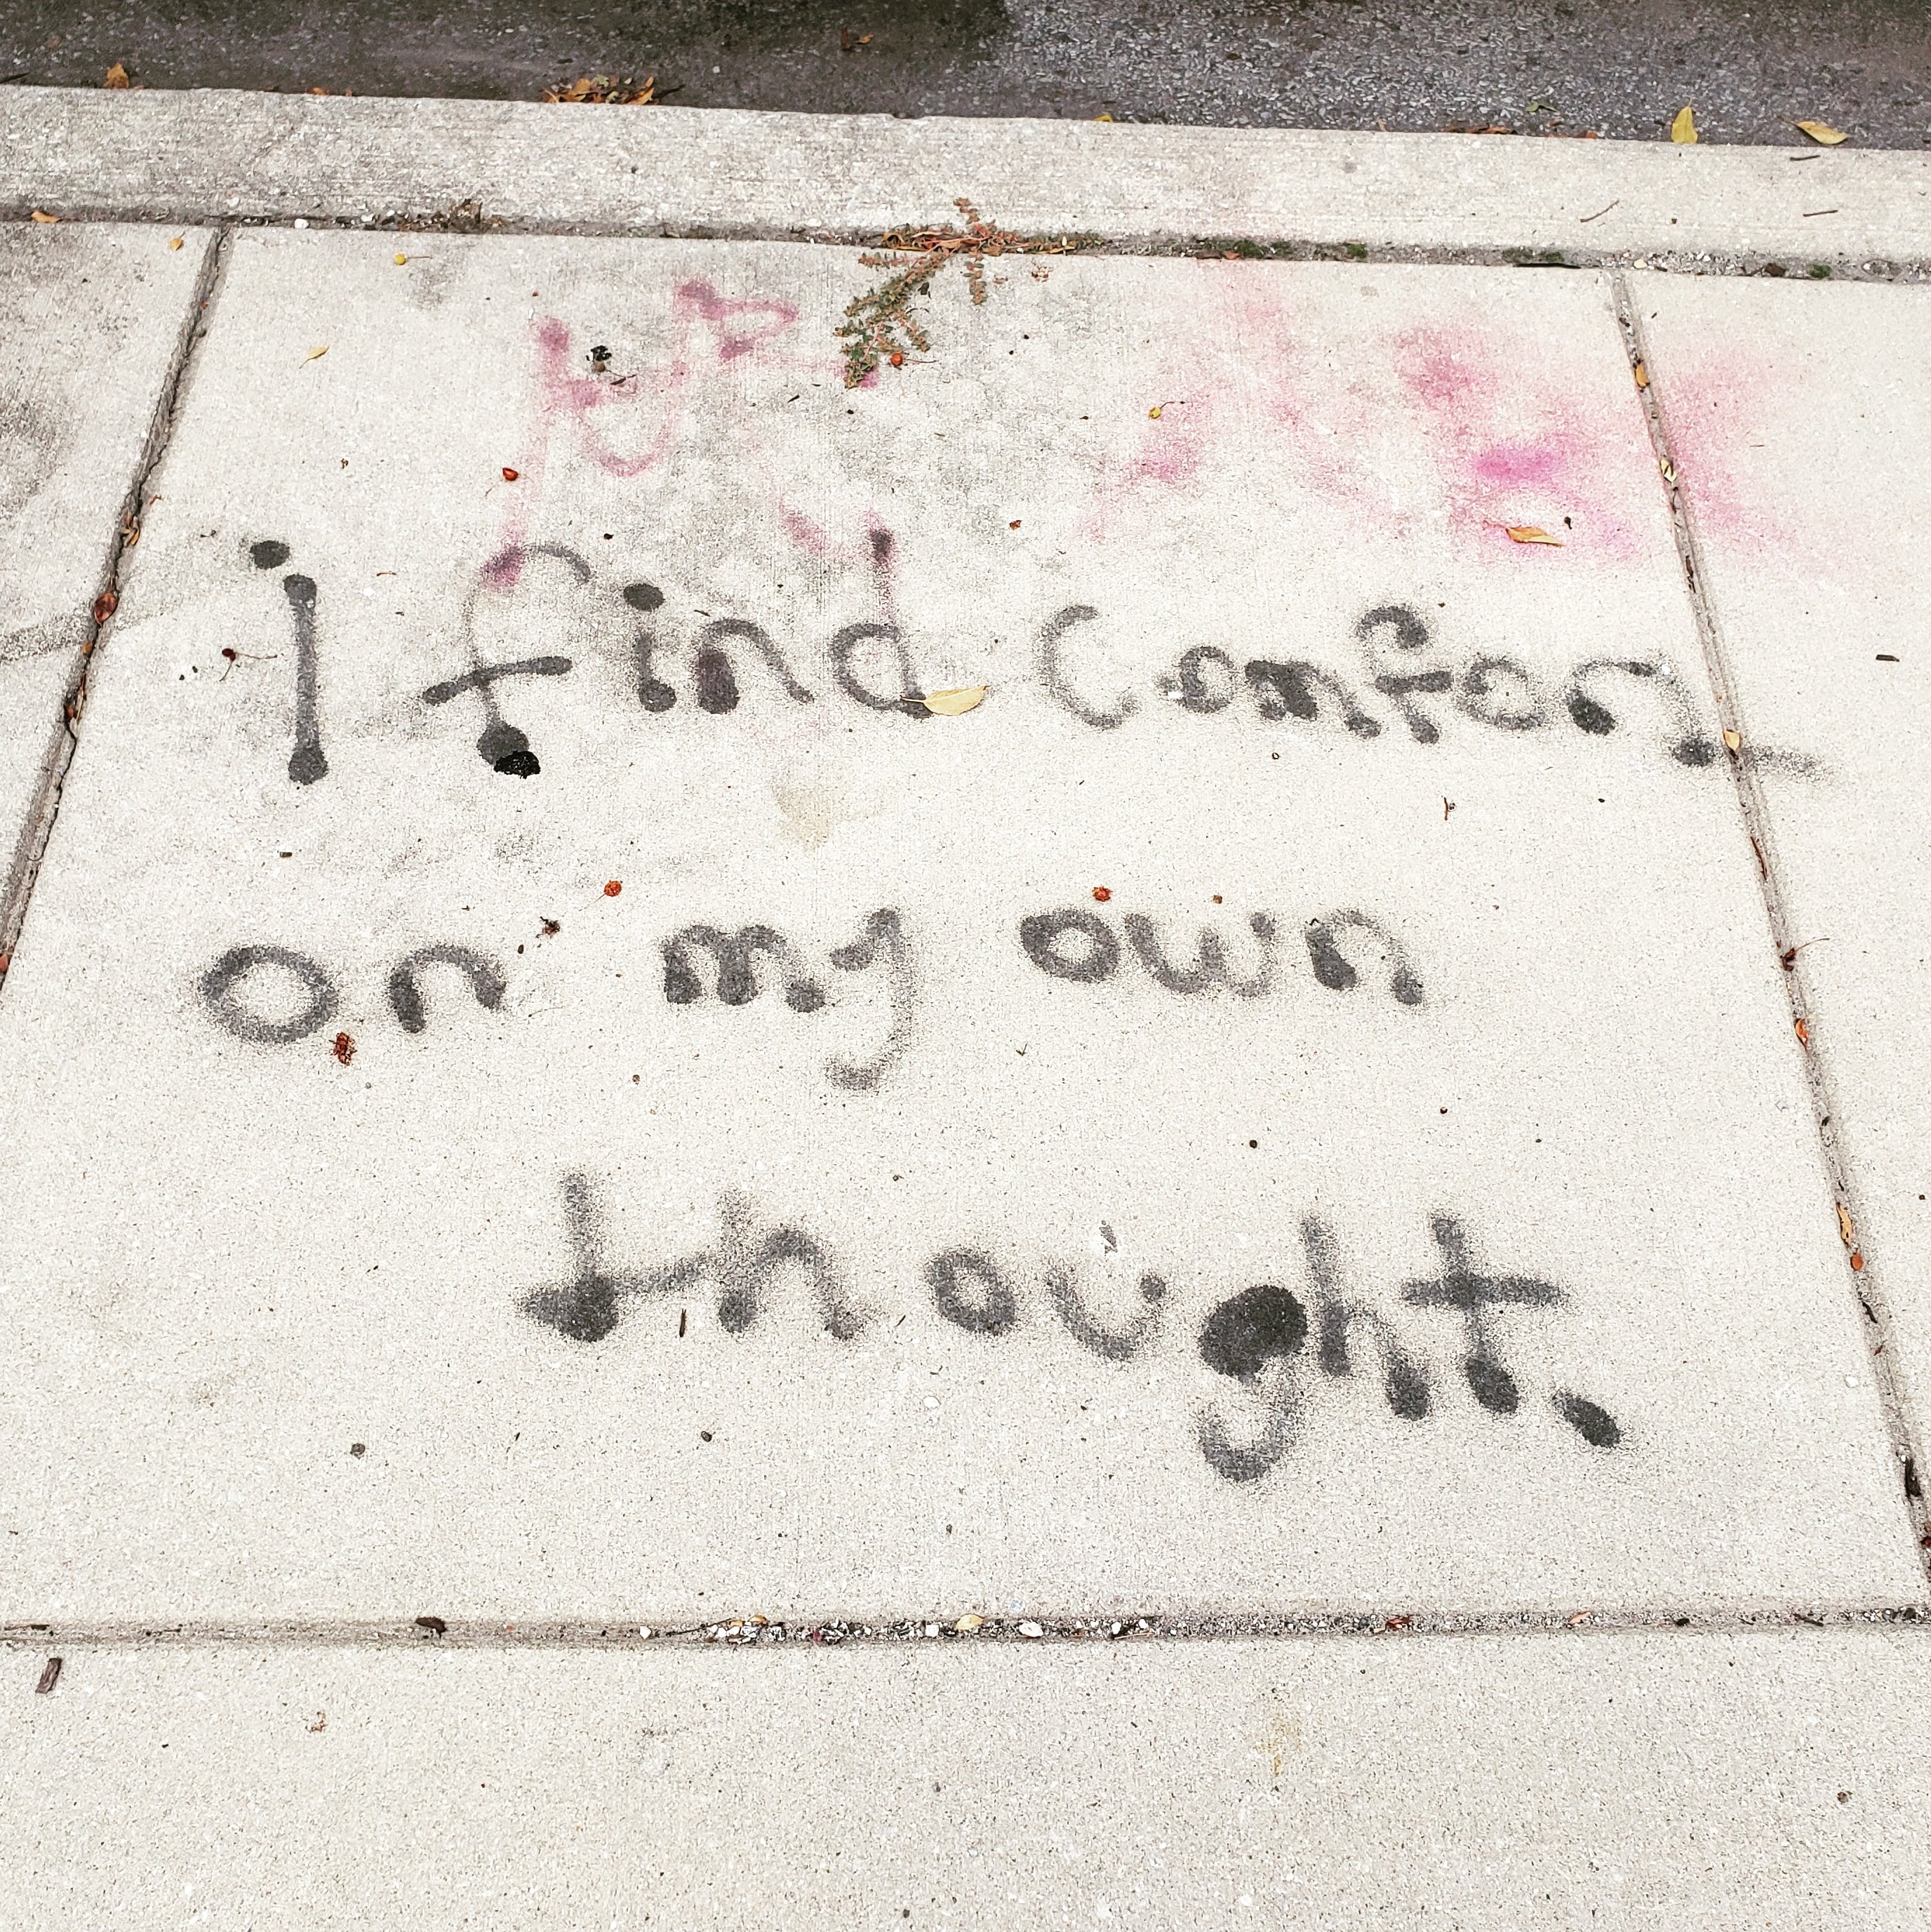 i find Comfort
on my own
thought.